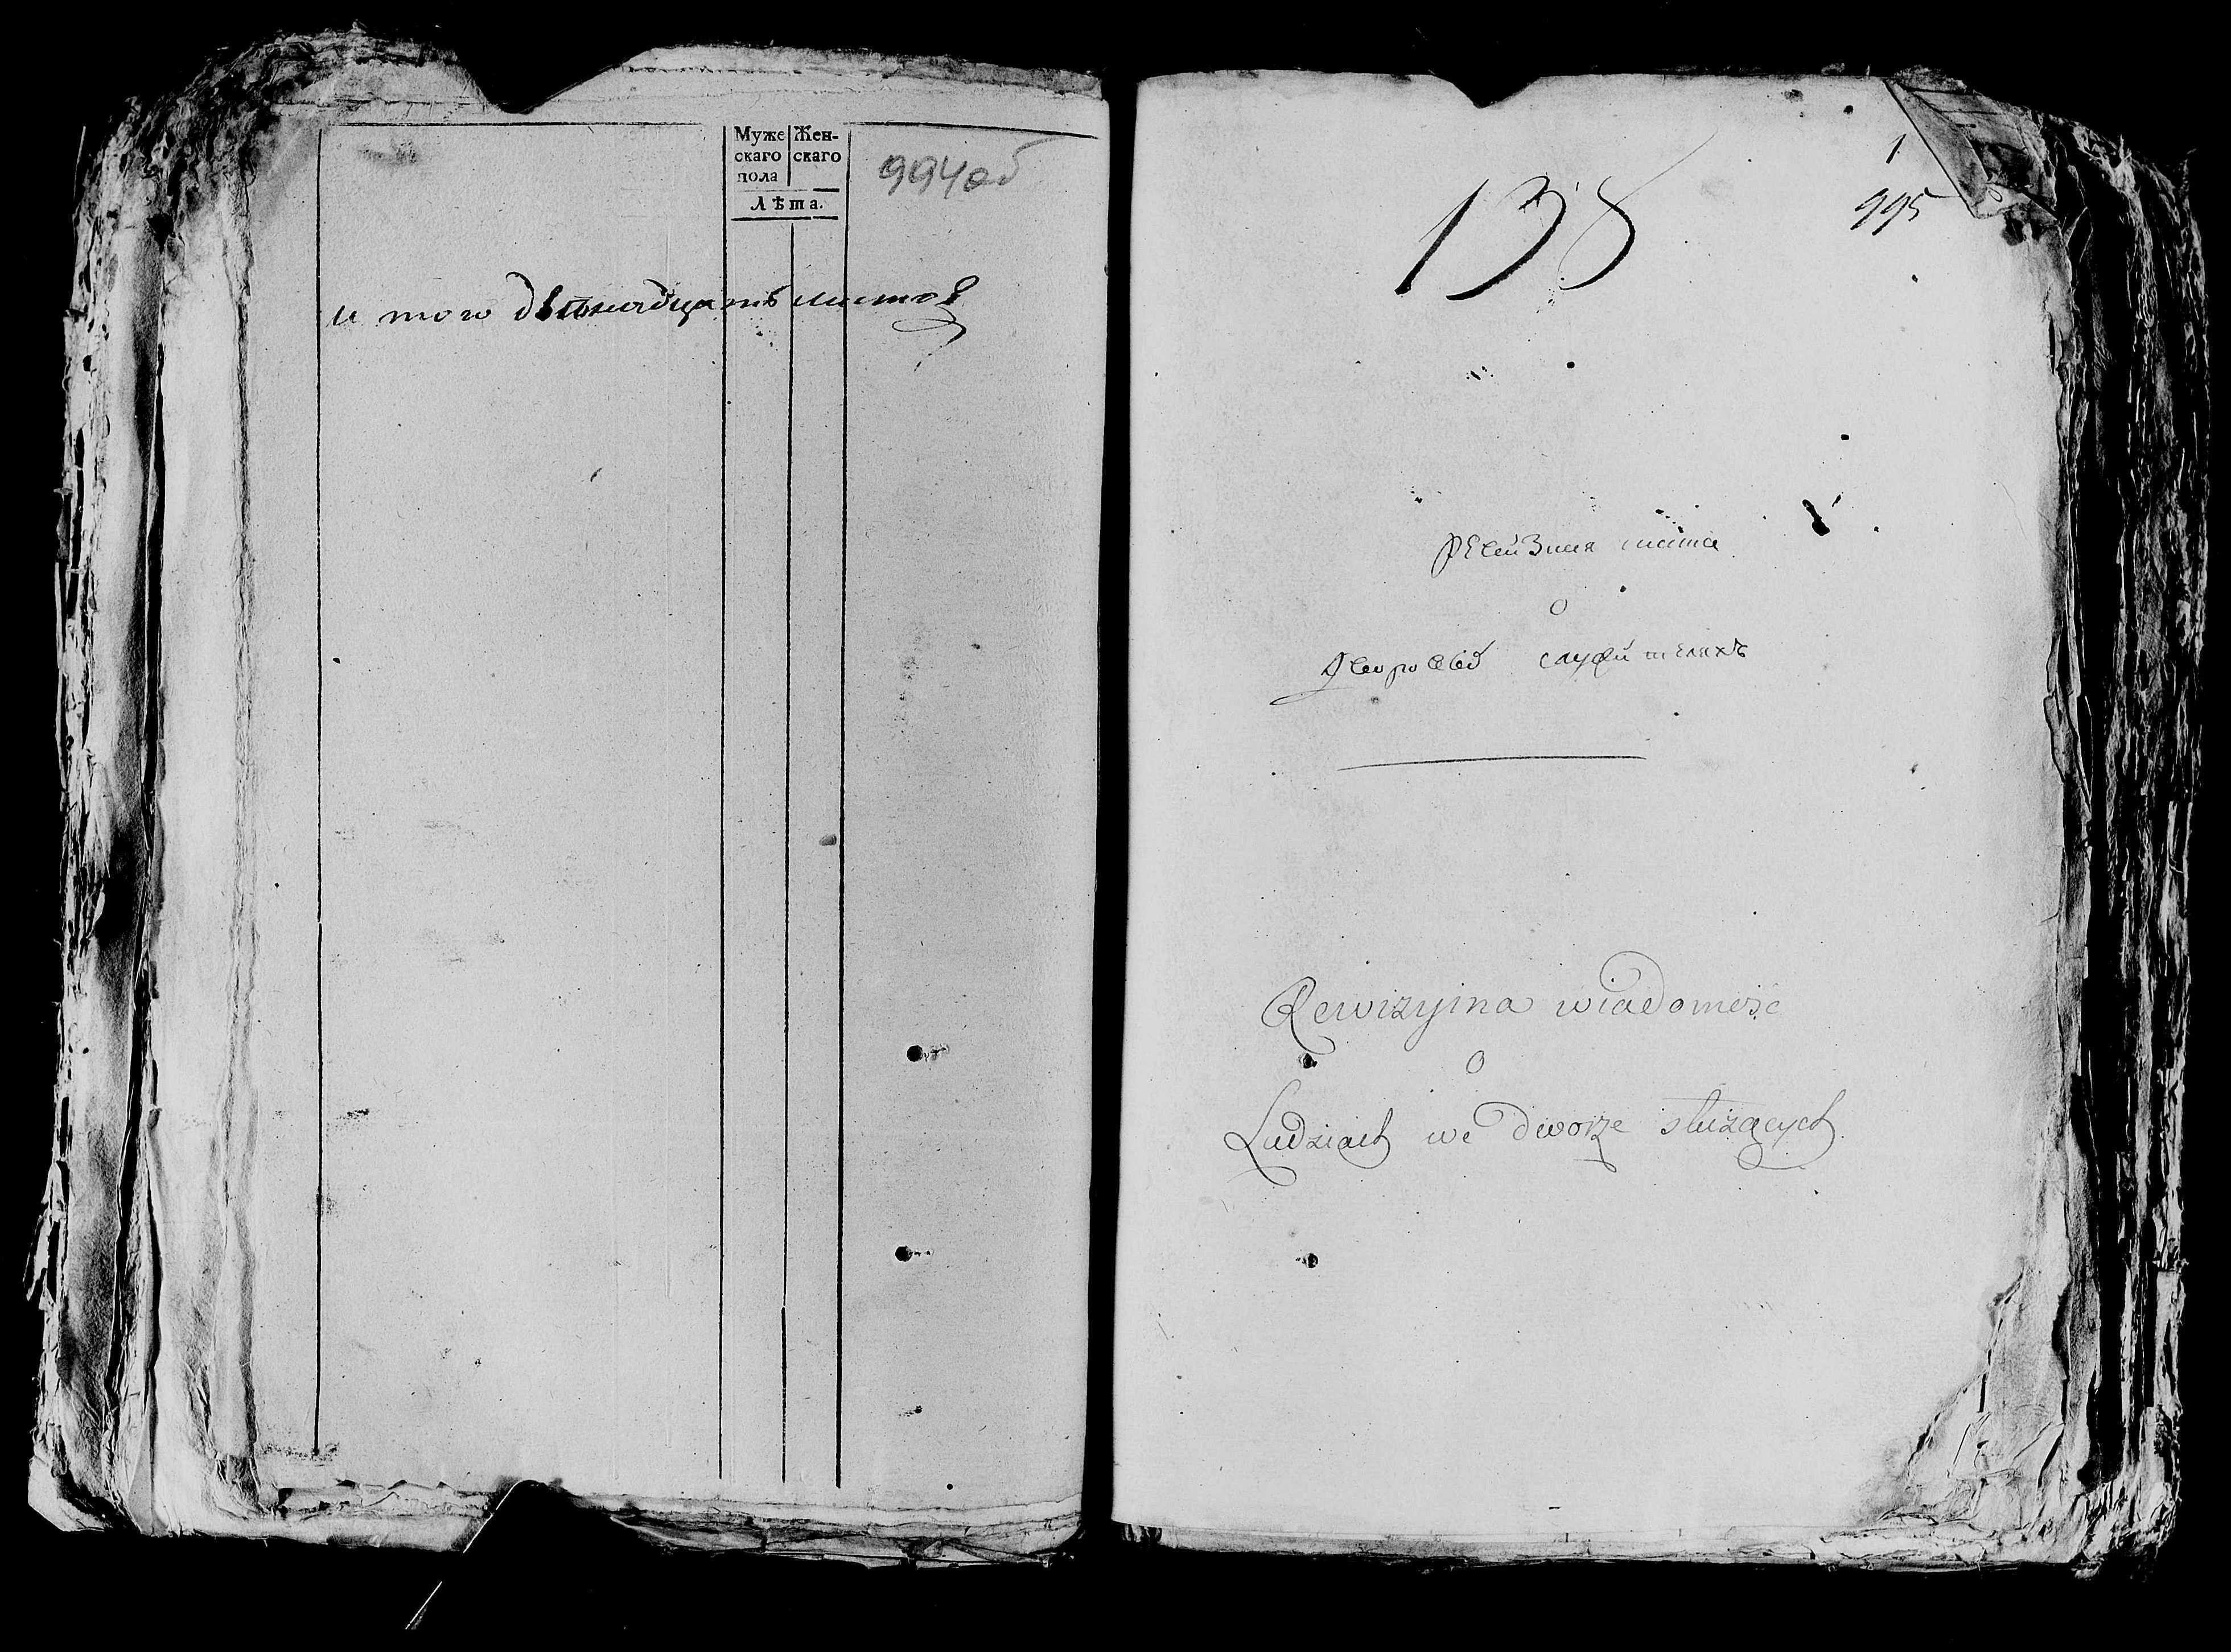 Муже Жен-
скаго скаго
пола
Лѣта.
994об
и того двенадцать листов
1
138
995
Ревизная
о
дворовых служителяхъ
Rewizyina wiadomość
o
Ludziach we dworze służących